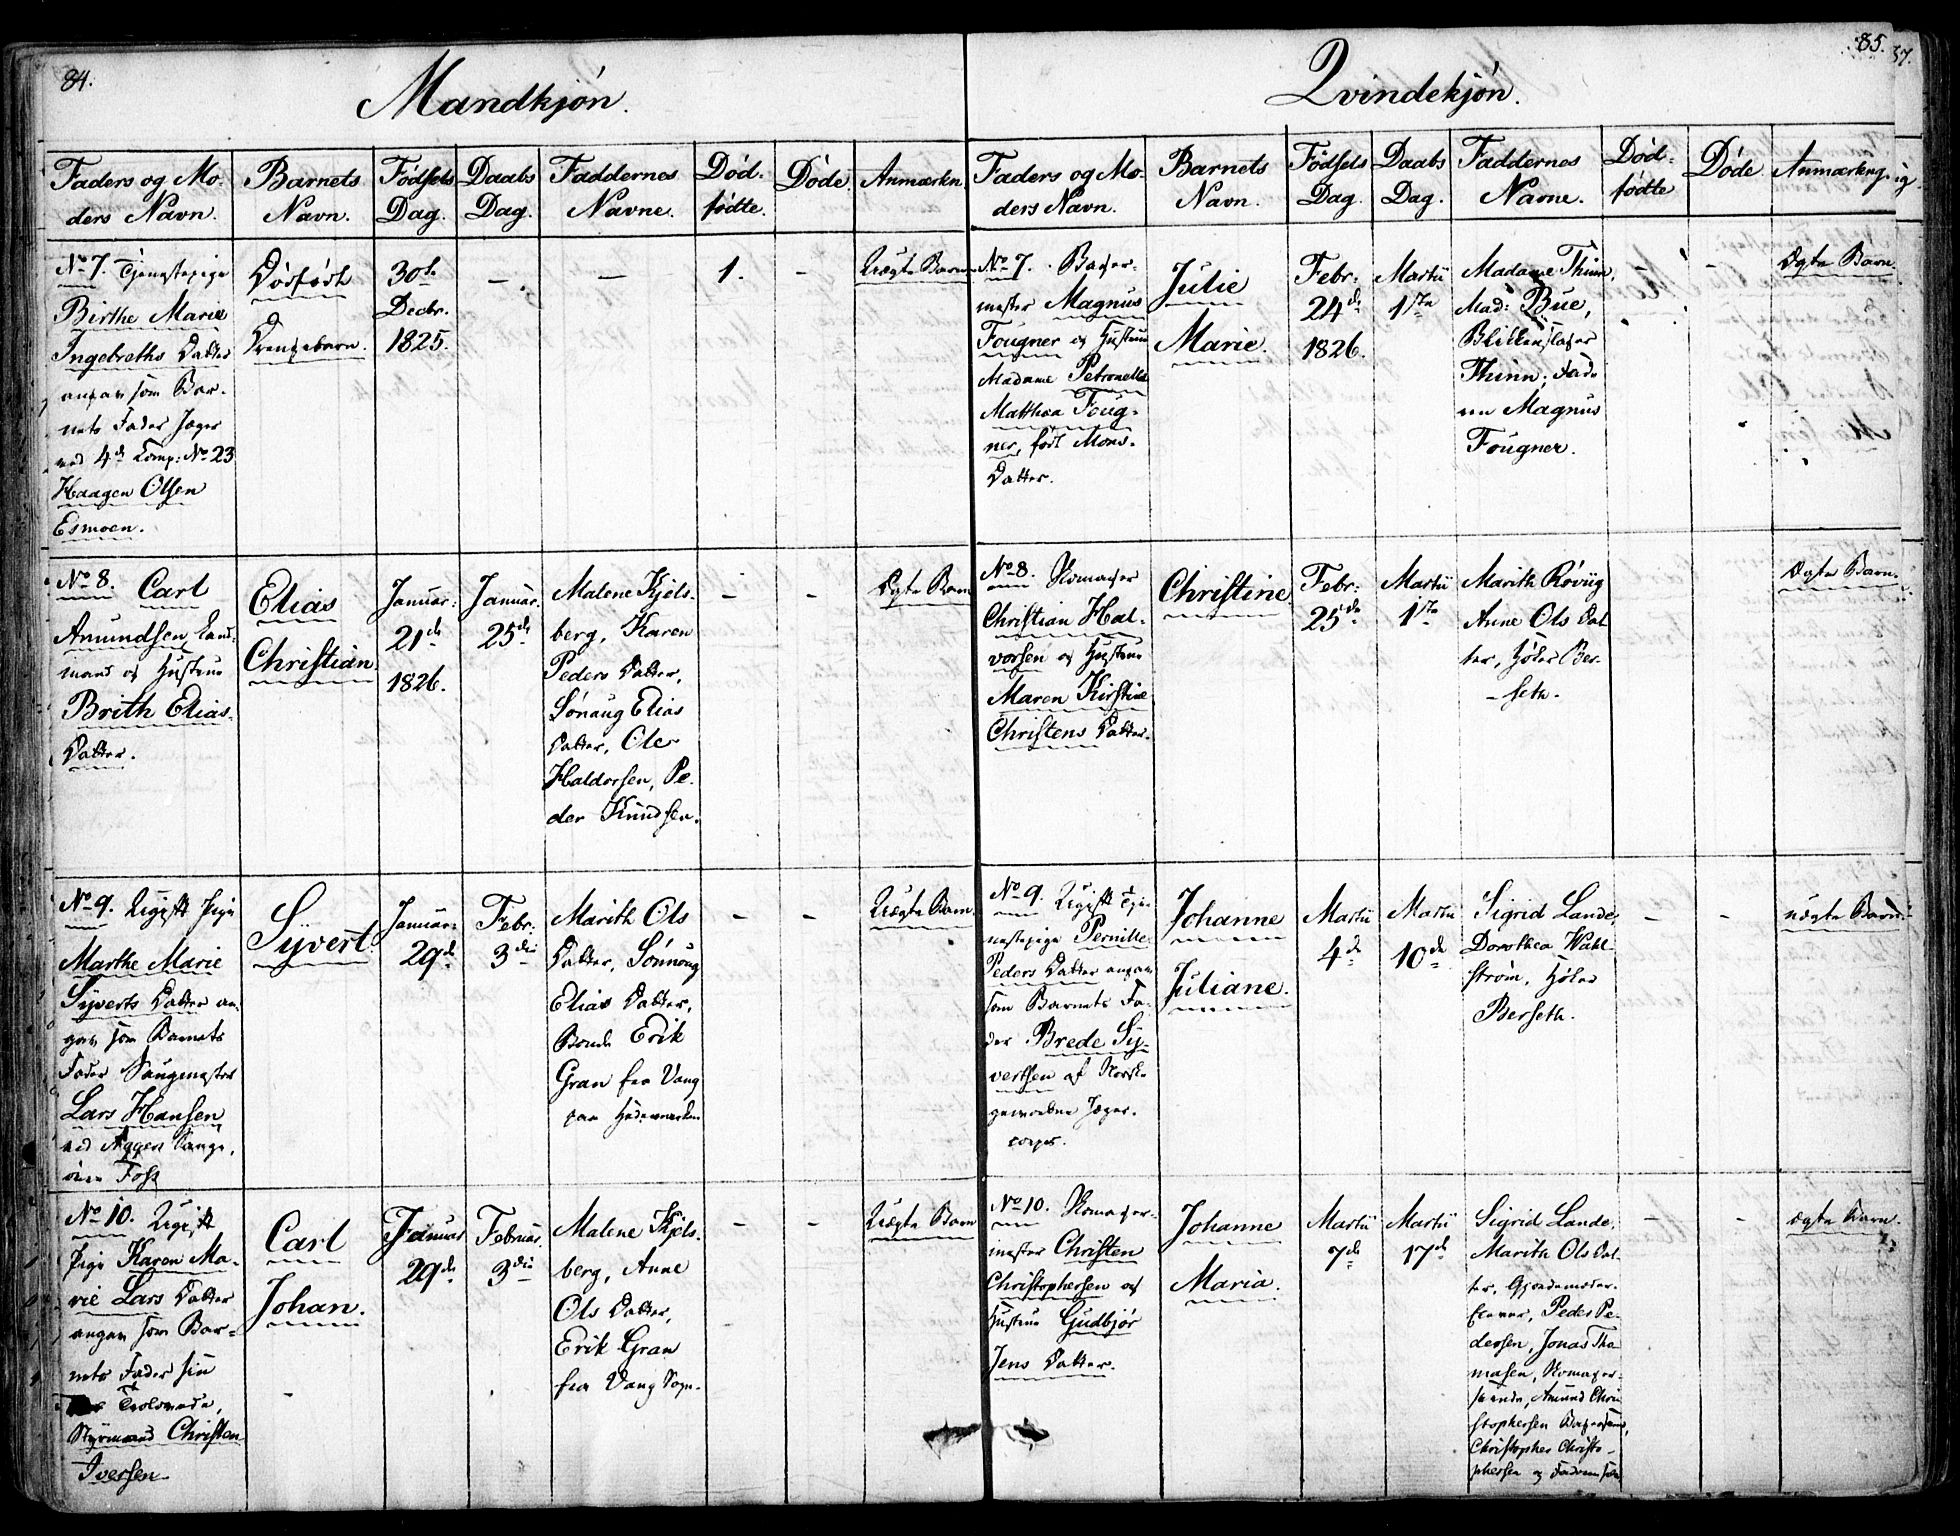 84.
Mandkjön.
Faders og Mo-
ders Navn.
Barnets
Navn.
Födsels
Dag.
Daabs
Dag.
Faddernes
Navne.
Död-
födte.
Döde.
Anmærkn.
No 7. Tjenestepige
Birthe Marie
Ingebreths Datter
angav som Bar-
nets Fader Jæger
ved 4de Comp: No 23
Haagen Olsen
Esmoen.
Dødfødt
Drengebarn.
30te
Decbr.
1825.
–
–
1.
–
Uægte Barn
No 8. Carl
Amundsen Land-
mand og Hustrue
Brith Elias-
Datter.
Elias
Christian.
Januar:
21de
1826.
Januar.
25de
Malene Kjels-
berg, Karen
Peders Datter,
Sønaug Elias
Datter, Ole
Haldorsen, Pe-
der Knudsen.
–
–
Ægte Barn
No 9. Ugift Pige
Marthe Marie
Syverts Datter an-
gav som Barnets
Fader Saugmester
Lars Hansen
ved Aggers Sauge,
Foss
Syvert.
Januar:
29de
Febr:
3die
Marith Ols
Datter, Sønnoug
Elias Datter,
Bonde Erik
Gran fra Vang
paa Hedemarken
–
–
Uægte Barn
No 10. Ugift
Pige Karen Ma-
rie Lars Datter
angav som Bar-
nets Fader sin
Trolovede,
Styrmand Christen
Iversen.
Carl
Johan.
Januar
29de
Februar.
3die
Malene Kjels-
berg, Anne
Ols Datter,
Erik Gran
fra Vang Sogn.
–
–
Uægte Barn
85.
37.
Qvindekjön.
Faders og Mo-
ders Navn.
Barnets
Navn.
Födsels
Dag.
Daabs
Dag.
Faddernes
Navne.
Död-
födte
Döde
Anmærkng.
No 7. Bager-
mester Magnus
Fougner og Hustrue
Madame Petronelle
Matthea Foug-
ner, født Mons-
Datter.
Julie
Marie.
Febr:
24de
1826.
Martii
1ste
Madame Thinn,
Mad: Bue,
Blikkenslager
Thinn, Fade-
ren Magnus
Fougner.
–
Ægte Barn.
No 8. Skomager
Christian Hal-
vorsen og Hustrue
Maren Kirstine
Christens Datter.
Christine
Febr:
25de
Martii
1ste
Marith Røvüg
Anne Ols Dat
ter, Høker Ber-
seth.
Ægte Barn.
No 9. Ugift Tje-
nestepige Pernille
Peders Datter angav
som Barnets Fa-
der Brede Sy-
vertsen af Norske
geworbne Jæger-
corps.
Johanne
Juliane.
Martii
4de
Martii
10de
Sigrid Lande,
Dorothea Wahl-
strøm, Høker
Berseth.
–
–
uægte Barn.
No 10. Skomager-
mester Christen
Christophersen og
Hustrue Gudbjør
Jens Datter.
Johanne
Maria.
Martii
7de
Martii
17de
Sigrid Lande,
Marith Ols Dat-
ter, Gjordemoder-
Peder Pe-
dersen, Jonas Tho-
masen, Skomager-
svende, Amund Chri-
stophersen
Christopher Christo-
phersen og Faderen selv
–
–
ægte Barn.